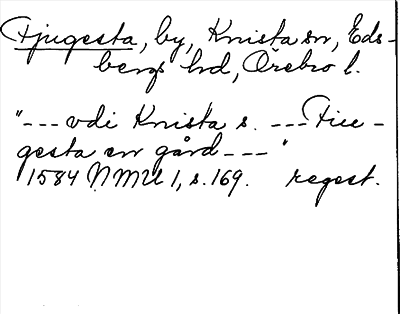 Fjugesta, by, Knista sn, Eds-
bergs hd, Örebro l.
"--- vdi Knista s. --- Fiee-
gesta en gård --- "
1584 NMU 1, s. 169. regest.